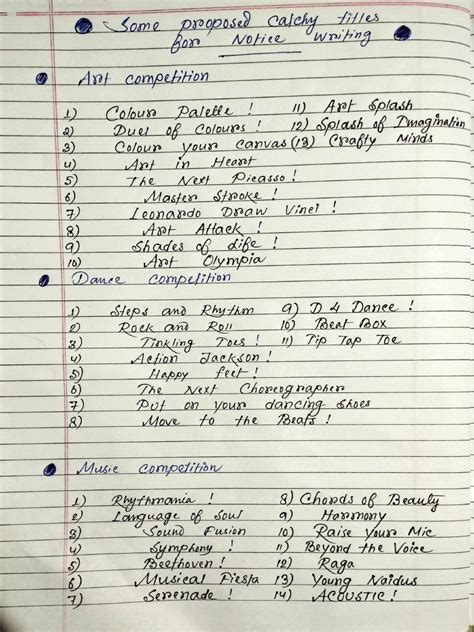 Some proposed catchy titles
for Notice Writing
Art competition
1) Colour Palette ! 11) Art Splash
2) Duel of Colours ! 12) Splash of Imagination
3) Colour your canvas (13) Crafty Minds
4) Art in Heart
5) The Next Picasso !
6) Master Stroke !
7) Leonardo Draw Vinci !
8) Art Attack !
9) Shades of life !
10) Art Olympia
Dance competition
1) Steps and Rhythm 9) D 4 Dance !
2) Rock and Roll 10) Beat Box
3) Tinkling Toes ! 11) Tip Tap Toe
4) Action Jackson !
5) Happy feet !
6) The Next Choreographer
7) Put on your dancing shoes
8) Move to the Beats !
Music competition
1) Rhythmania ! 8) Chords of Beauty
2) Language of Soul 9) Harmony
3) Sound Fusion 10) Raise Your Mic
4) Symphony ! 11) Beyond the Voice
5) Beethoven ! 12) Raga
6) Musical Fiesta 13) Young Naidus
7) Serenade ! 14) ACOUSTIC !